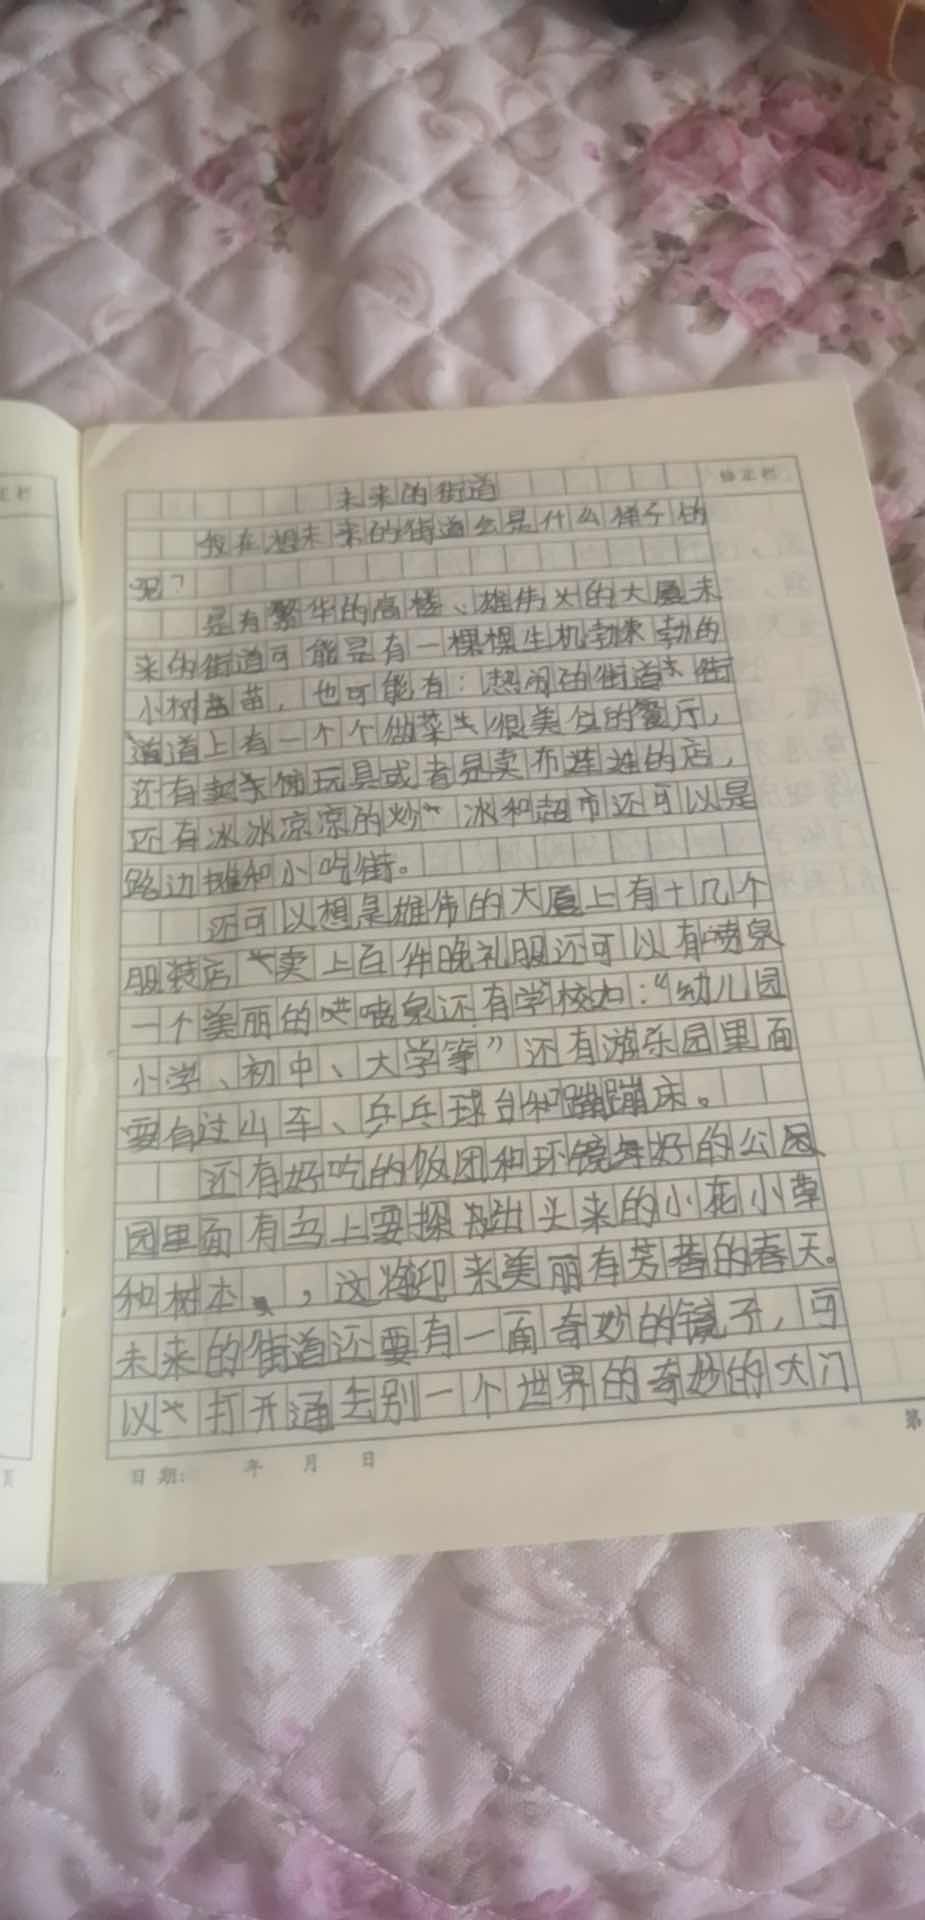 正栏
修正栏
未来的街道
我在想未来的街道会是什么样子的
呢?
是有繁华的高楼、雄伟火的大厦未
来的街道可能是有一棵棵生机勃来勃的
小树苗苗，也可能有：热闹的街道 街
道道上有一个个做菜 很美位的餐厅，
还有 玩具或者是卖布 的店，
还有冰冰凉凉的炒 冰和超市还可以是
路边摊和小吃街。
还可以想是雄伟的大厦上有十几个
服装店 卖上百件晚礼服还可以有喷泉
一个美丽的 喷泉还有学校如：“幼儿园
小学、初中、大学等”还有游乐园里面
要有过山车、乒乓球台和蹦蹦床。
还有好吃的饭团和环镜 好的公园
园里面有鸟上要探 出头来的小花小草
和树木 ，这将迎来美丽有芳香的春天。
未来的街道还要有一面奇妙的镜子，可
以 打开通去别一个世界的奇妙的大门
日期: 年 月 日
第
页